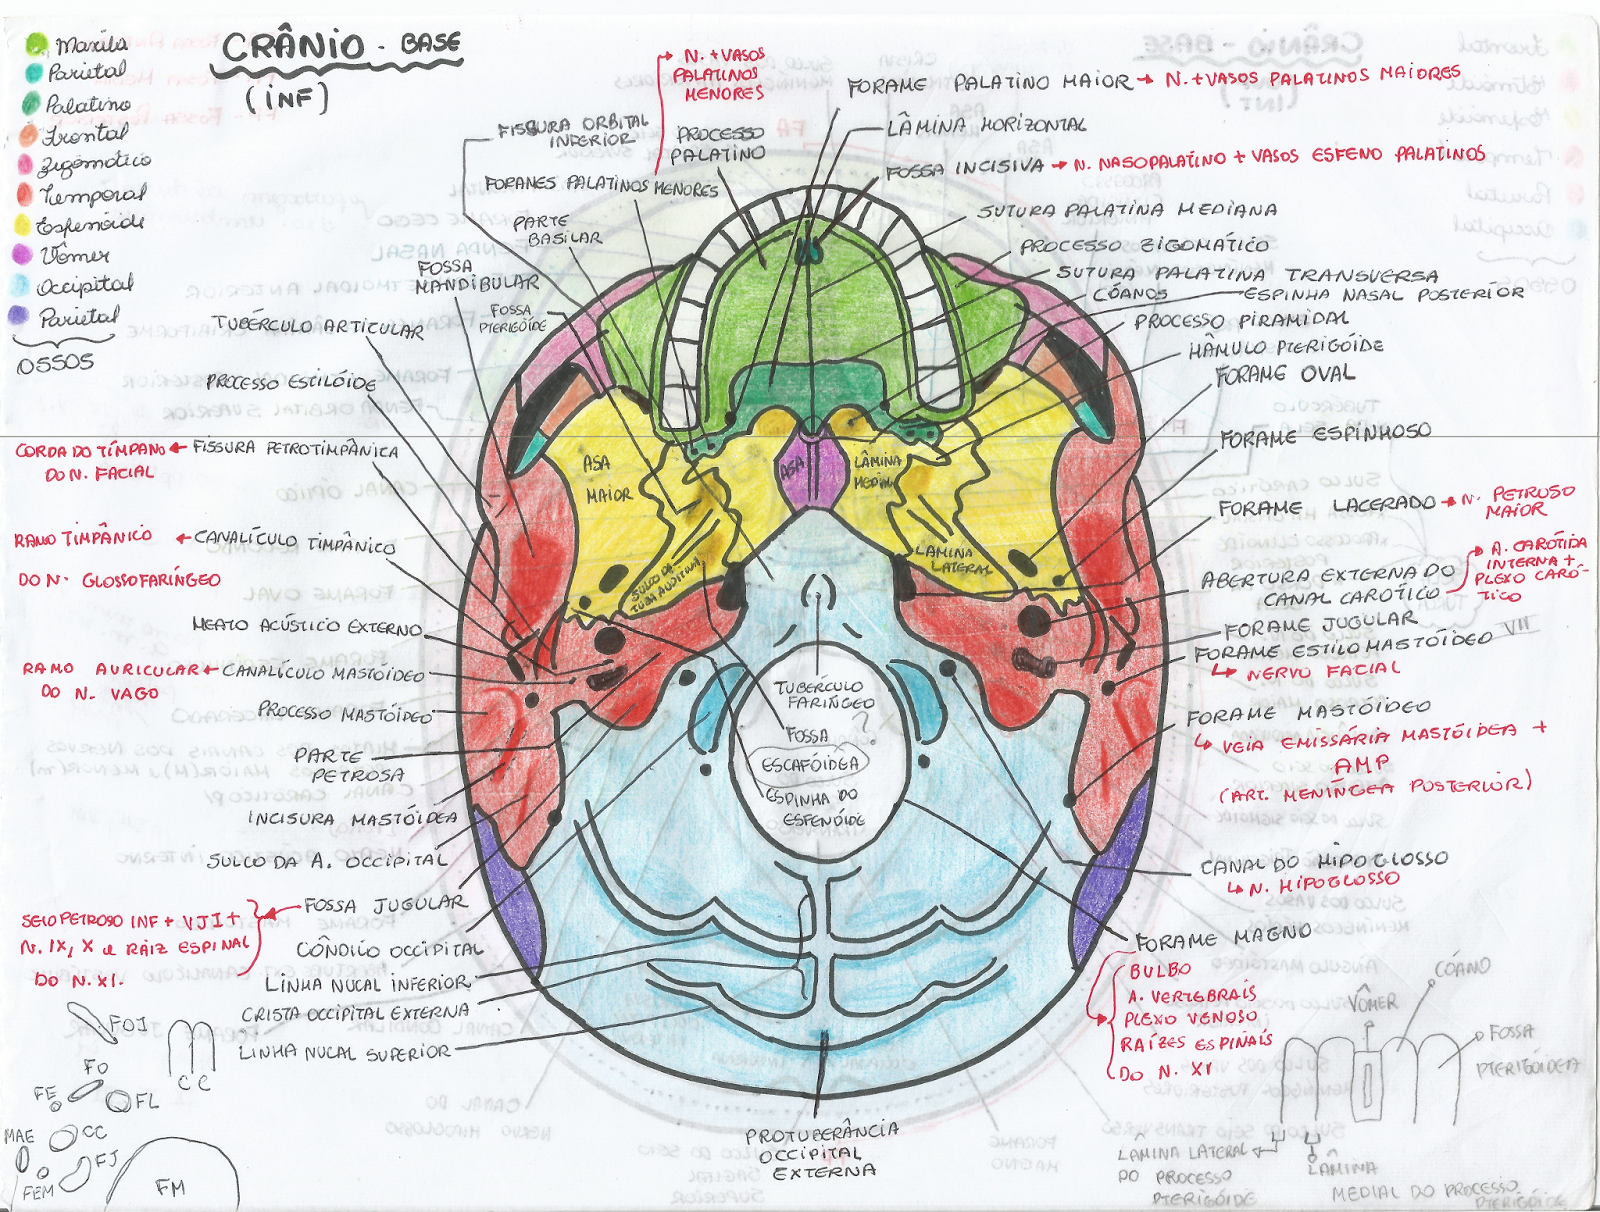 CRÂNIO - BASE
(INF)
Maxila
Parietal
Palatino
Frontal
Zigomático
Temporal
Esfenóide
Vômer
Occipital
Parietal
OSSOS
N. + VASOS
PALATINOS
MENORES
FISSURA ORBITAL
INFERIOR
PROCESSO
PALATINO
FORANES PALATINOS MENORES
PARTE
BASILAR
FOSSA
MANDIBULAR
FOSSA
PTERIGÓIDE
TUBÉRCULO ARTICULAR
PROCESSO ESTILÓIDE
CORDA DO TÍMPANO ← FISSURA PETROTIMPÂNICA
DO N. FACIAL
RAMO TIMPÂNICO ← CANALÍCULO TIMPÂNICO
DO N. GLOSSOFARÍNGEO
MEATO ACÚSTICO EXTERNO
RAMO AURICULAR ← CANALÍCULO MASTÓIDEO
DO N. VAGO
PROCESSO MASTÓIDEO
PARTE
PETROSA
INCISURA MASTÓIDEA
SULCO DA A. OCCIPITAL
FOSSA JUGULAR
SEIO PETROSO INF + VJI +
N. IX, X e RAIZ ESPINAL
DO N. XI.
CÔNDILO OCCIPITAL
LINHA NUCAL INFERIOR
CRISTA OCCIPITAL EXTERNA
LINHA NUCAL SUPERIOR
FORAME PALATINO MAIOR → N. + VASOS PALATINOS MAIORES
LÂMINA HORIZONTAL
FOSSA INCISIVA → N. NASOPALATINO + VASOS ESFENO PALATINOS
SUTURA PALATINA MEDIANA
PROCESSO ZIGOMÁTICO
SUTURA PALATINA TRANSVERSA
CÓANOS
ESPINHA NASAL POSTERIOR
PROCESSO PIRAMIDAL
HÂMULO PTERIGÓIDE
FORAME OVAL
FORAME ESPINHOSO
FORAME LACERADO → N. PETROSO
MAIOR
ABERTURA EXTERNA DO
CANAL CARÓTICO
A. CARÓTIDA
INTERNA +
PLEXO CARÓ-
TICO
FORAME JUGULAR
FORAME ESTILOMASTÓIDEO VII
↳ NERVO FACIAL
FORAME MASTÓIDEO
↳ VEIA EMISSÁRIA MASTÓIDEA +
AMP
(ART. MENÍNGEA POSTERIOR)
CANAL DO HIPOGLOSSO
↳ N. HIPOGLOSSO
FORAME MAGNO
BULBO
A. VERTEBRAIS
PLEXO VENOSO
RAÍZES ESPINAIS
DO N. XI
ASA
MAIOR
ASA
LÂMINA
MEDIAL
LÂMINA
LATERAL
SULCO DA
TUBA AUDITIVA
TUBÉRCULO
FARÍNGEO
FOSSA
ESCAFÓIDEA
?
ESPINHA DO
ESFENÓIDE
PROTUBERÂNCIA
OCCIPITAL
EXTERNA
FOI
C C
FO
FE
FL
MAE
CC
FJ
FEM
FM
CÓANO
VÔMER
FOSSA
PTERIGÓIDEA
LÂMINA LATERAL
DO PROCESSO
PTERIGÓIDE
LÂMINA
MEDIAL DO PROCESSO
PTERIGÓIDE